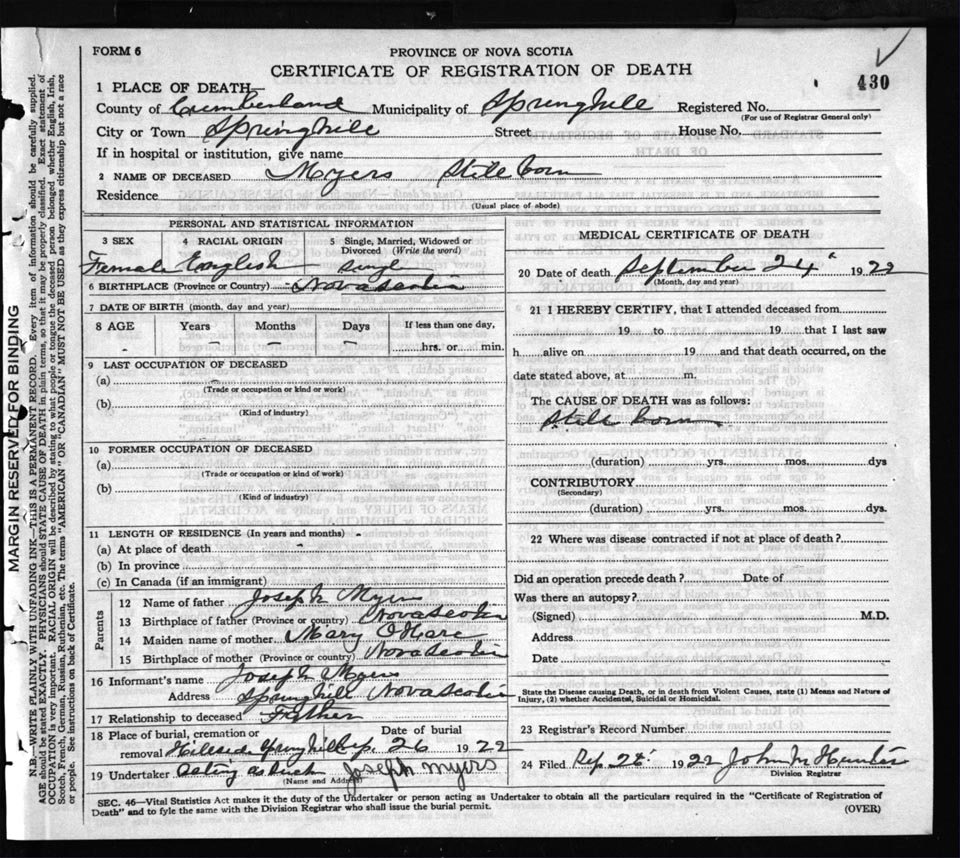 FORM 6
PROVINCE OF NOVA SCOTIA
CERTIFICATE OF REGISTRATION OF DEATH
430
1 PLACE OF DEATH—
County of Cumberland Municipality of Springhill Registered No.
(For use of Registrar General only)
City or Town Springhill Street House No.
If in hospital or institution, give name
2 NAME OF DECEASED Myers Still born
Residence
(Usual place of abode)
PERSONAL AND STATISTICAL INFORMATION
3 SEX 4 RACIAL ORIGIN 5 Single, Married, Widowed or Divorced (Write the word)
Female English Single
6 BIRTHPLACE (Province or Country) Nova Scotia
7 DATE OF BIRTH (month, day, and year)
8 AGE Years Months Days If less than one day,
hrs. or min.
9 LAST OCCUPATION OF DECEASED
(a)
(Trade or occupation or kind or work)
(b)
(Kind of industry)
10 FORMER OCCUPATION OF DECEASED
(a)
(Trade or occupation or kind of work)
(b)
(Kind of industry)
11 LENGTH OF RESIDENCE (In years and months)
(a) At place of death
(b) In province
(c) In Canada (if an immigrant)
Parents
12 Name of father Joseph Myers
13 Birthplace of father (Province or country) Nova Scotia
14 Maiden name of mother Mary O'Hare
15 Birthplace of mother (Province or country) Nova Scotia
16 Informant's name Joseph Myers
Address Springhill Nova Scotia
17 Relationship to deceased Father
18 Place of burial, cremation or Date of burial
removal Hillside Springhill Sep. 26 1922
19 Undertaker Acting as such Joseph Myers
(Name and Address)
MEDICAL CERTIFICATE OF DEATH
20 Date of death September 24 1922
(Month, day and year)
21 I HEREBY CERTIFY, that I attended deceased from
19 to 19 that I last saw
h alive on 19 and that death occurred, on the
date stated above, at m.
The CAUSE OF DEATH was as follows:
Still born
(duration) yrs. mos. dys
CONTRIBUTORY
(Secondary)
(duration) yrs. mos. dys.
22 Where was disease contracted if not at place of death?
Did an operation precede death? Date of
Was there an autopsy?
(Signed) M.D.
Address
Date
State the Disease causing Death, or in death from Violent Causes, state (1) Means and Nature of
Injury, (2) whether Accidental, Suicidal or Homicidal.
23 Registrar's Record Number
24 Filed Sep. 1922 John M Hunter
Division Registrar
SEC. 46—Vital Statistics Act makes it the duty of the Undertaker or person acting as Undertaker to obtain all the particulars required in the "Certificate of Registration of
Death" and to fyle the same with the Division Registrar who shall issue the burial permit.
(OVER)
MARGIN RESERVED FOR BINDING
N.B.—WRITE PLAINLY WITH UNFADING INK—THIS IS A PERMANENT RECORD. Every item of information should be carefully supplied.
AGE should be stated EXACTLY. PHYSICIANS should STATE CAUSE OF DEATH in plain terms, so that it may be properly classified. Exact statement of
OCCUPATION is very important. RACIAL ORIGIN will be described by stating to what people or tongue the deceased person belonged whether English, Irish,
Scotch, French, German, Russian, Ruthenian, etc. The terms "AMERICAN" OR "CANADIAN" MUST NOT BE USED as they express citizenship but not a race
or people. See instructions on back of Certificate.